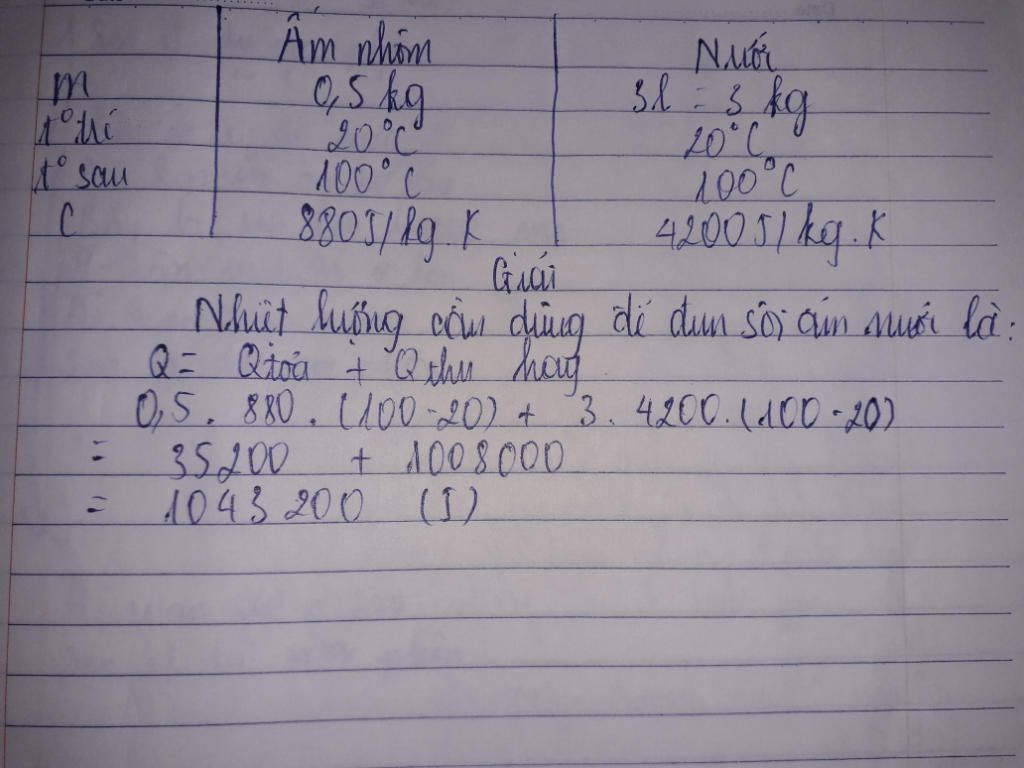 Ấm nhôm Nước
m 0,5 kg 3l = 3 kg
t° trc 20°C 20°C
t° sau 100°C 100°C
C 880J/kg.K 4200J/kg.K
Giải
Nhiệt lượng cần dùng để đun sôi ấm nước là:
Q = Qtoả + Qthu hay
0,5 . 880 . (100-20) + 3 . 4200 . (100-20)
= 35200 + 1008000
= 1043200 (J)